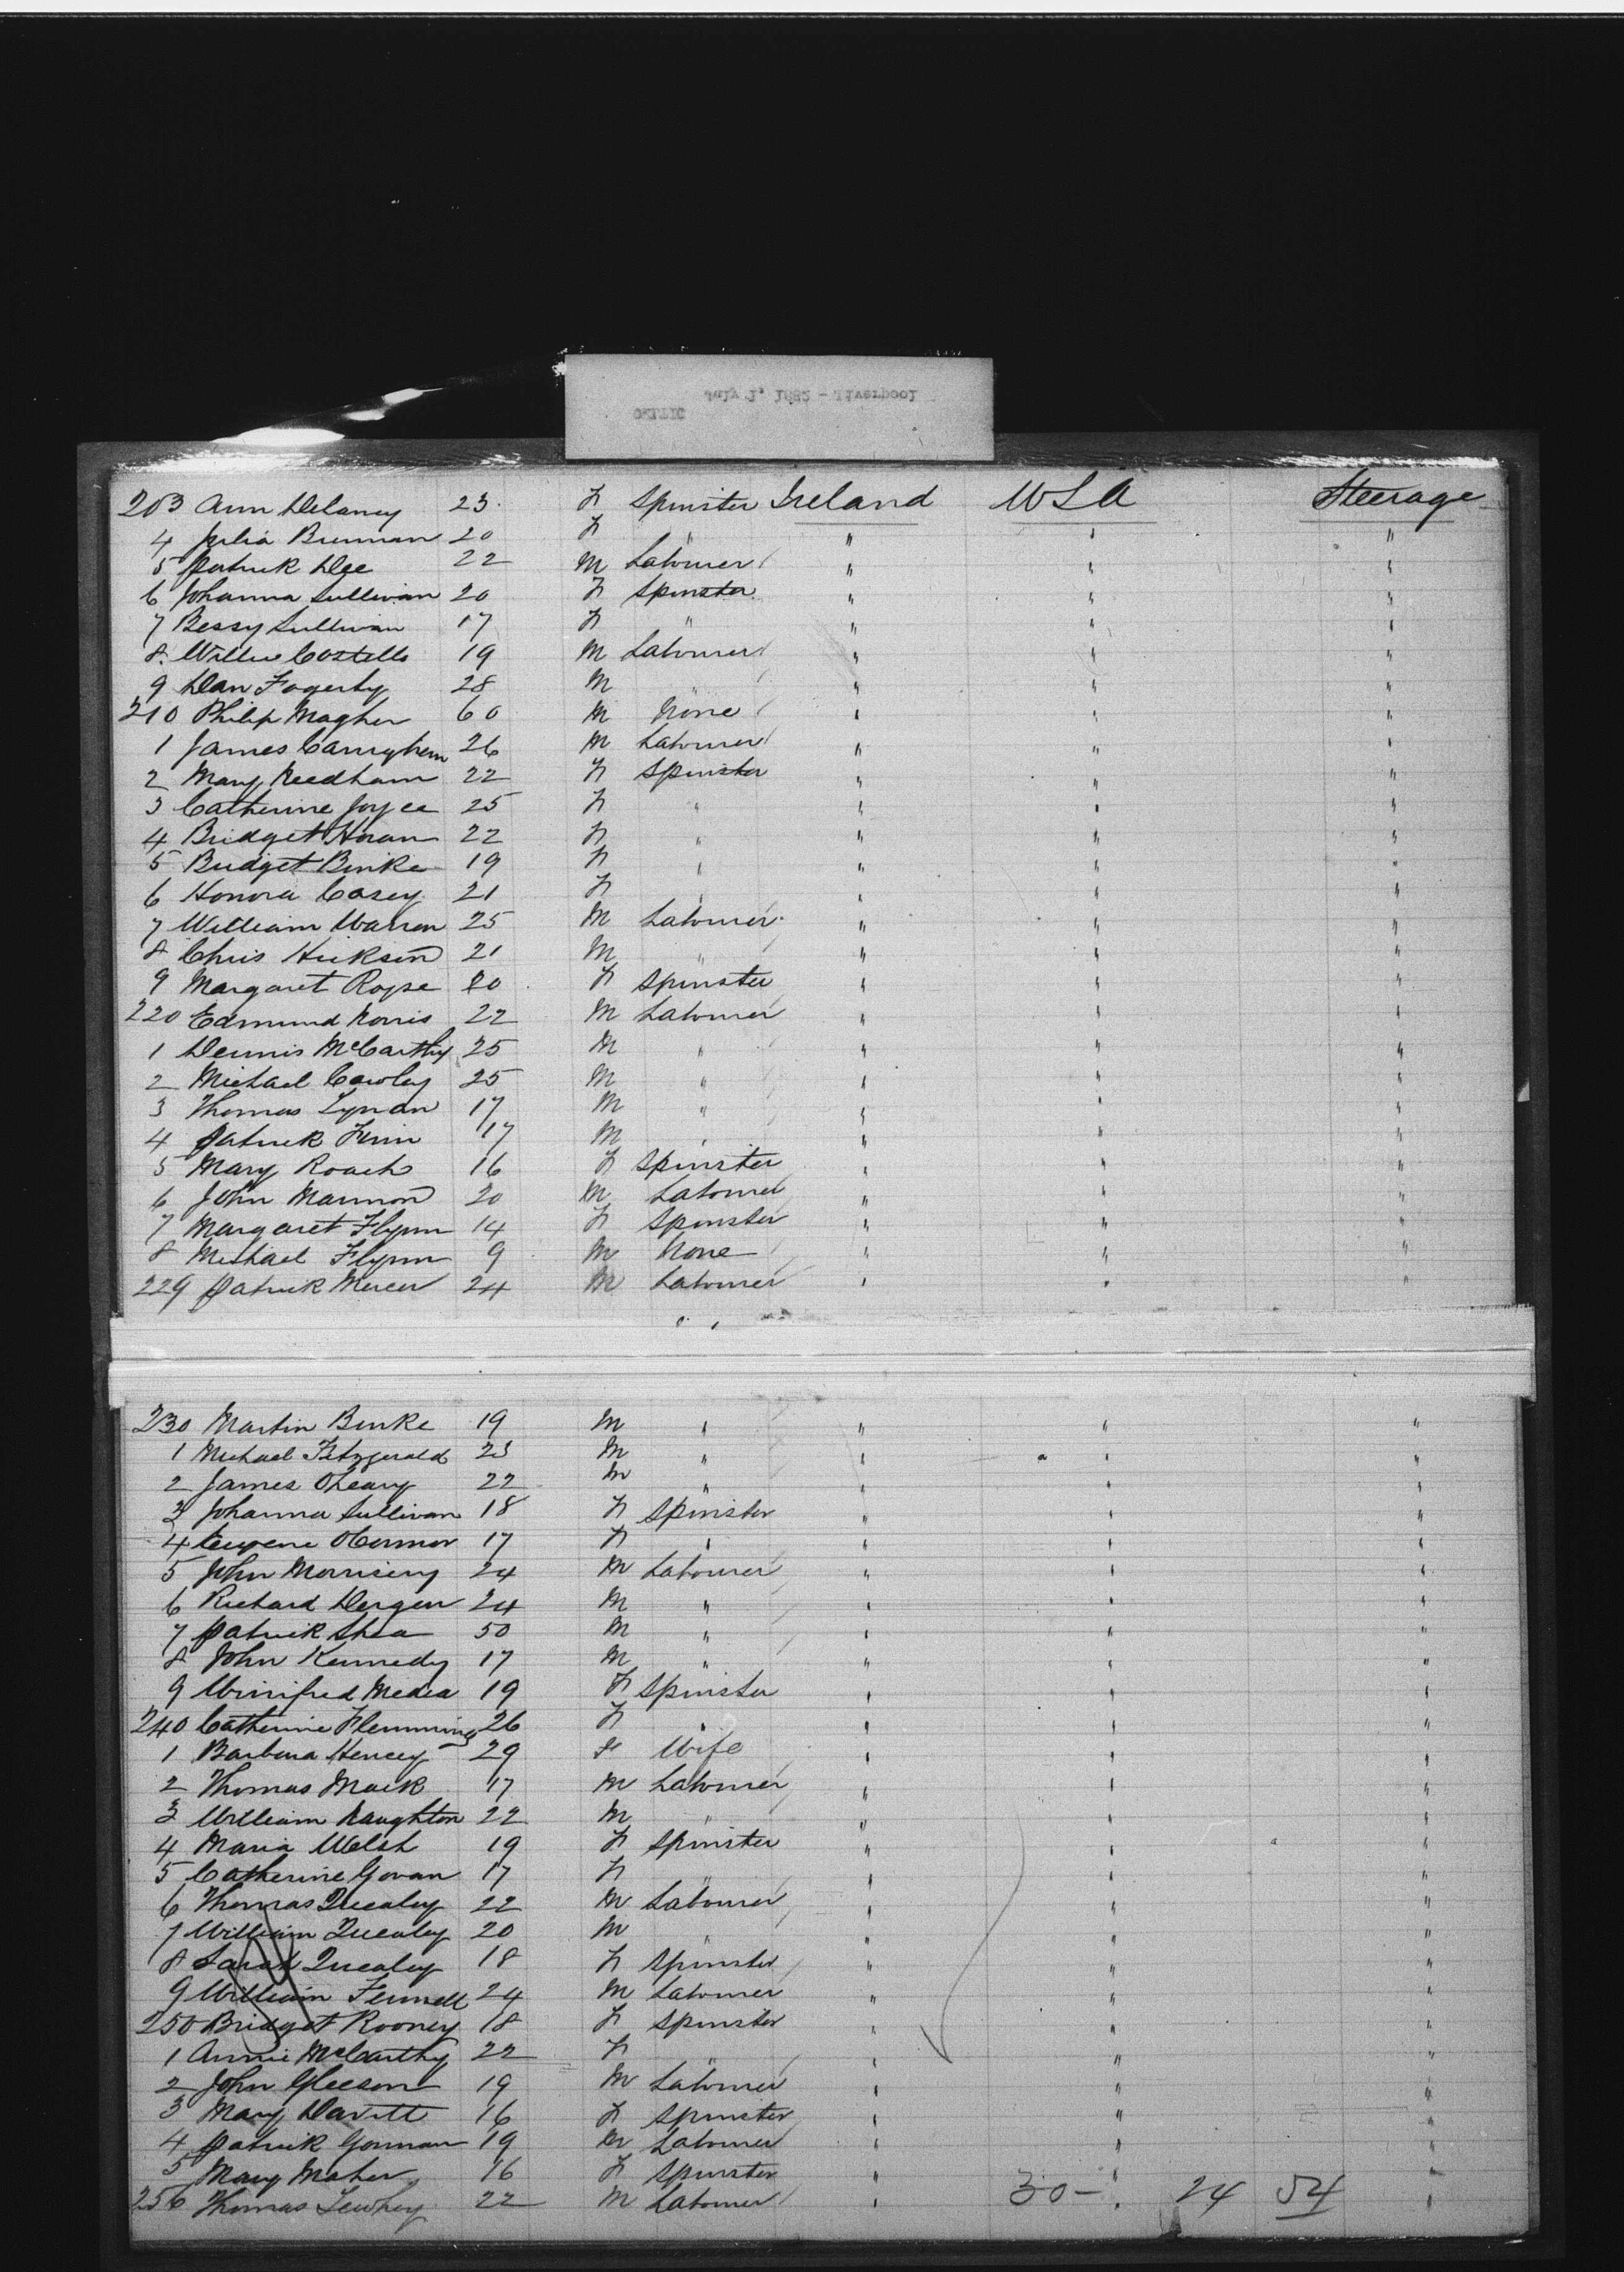 July 1, 1882 - Liverpool
CELTIC
203 Ann Delaney 23 F Spinster Ireland USA Steerage
4 Julia Brennan 20 F " " " "
5 Patrick Dee 22 M Labourer " " "
6 Johanna Sullivan 20 F Spinster " " "
7 Bessy Sullivan 17 F " " " "
8 Willie Costello 19 M Labourer " " "
9 Dan Fogerty 28 M " " " "
210 Philip Magher 60 M None " " "
1 James 26 M Labourer " " "
2 Mary Needham 22 F Spinster " " "
3 Catherine Joyce 25 F " " " "
4 Bridget Horan 22 F " " " "
5 Bridget Burke 19 F " " " "
6 Honora Casey 21 F " " " "
7 William Warren 25 M Labourer " " "
8 Chris Hickson 21 M " " " "
9 Margaret 20 F Spinster " " "
220 Edmund Norris 22 M Labourer " " "
1 Dennis McCarthy 25 M " " " "
2 Michael Cawley 25 M " " " "
3 Thomas Lynan 17 M " " " "
4 Patrick Finn 17 M " " " "
5 Mary Roach 16 F Spinster " " "
6 John Mannon 20 M Labourer " " "
7 Margaret Flynn 14 F Spinster " " "
8 Michael Flynn 9 M None " " "
229 Patrick Mercer 24 M Labourer " " "
230 Martin Burke 19 M " " " "
1 Michael Fitzgerald 23 M " " " "
2 James OLeary 22 M " " " "
3 Johanna Sullivan 18 F Spinster " " "
4 Eugene OConnor 17 F " " " "
5 John Morrisey 24 M Labourer " " "
6 Richard Dergen 24 M " " " "
7 Patrick Shea 50 M " " " "
8 John Kennedy 17 M " " " "
9 Winifred Medea 19 F Spinster " " "
240 Catherine Flemming 26 F " " " "
1 Barbara Hencey 29 F Wife " " "
2 Thomas Mack 17 M Labourer " " "
3 William Naughton 22 M " " " "
4 Maria Welsh 19 F Spinster " " "
5 Catherine Govan 17 F " " " "
6 Thomas Quealey 22 M Labourer " " "
7 William Quealey 20 M " " " "
8 Sarah Quealey 18 F Spinster " " "
9 William Fennell 24 M Labourer " " "
250 Bridget Rooney 18 F Spinster " " "
1 Annie McCarthy 22 F " " " "
2 John Gleeson 19 M Labourer " " "
3 Mary Davitt 16 F Spinster " " "
4 Patrick Gorman 19 M Labourer " " "
5 Mary Maher 16 F Spinster " " "
256 Thomas 22 M Labourer " 30 - " 24 54 "